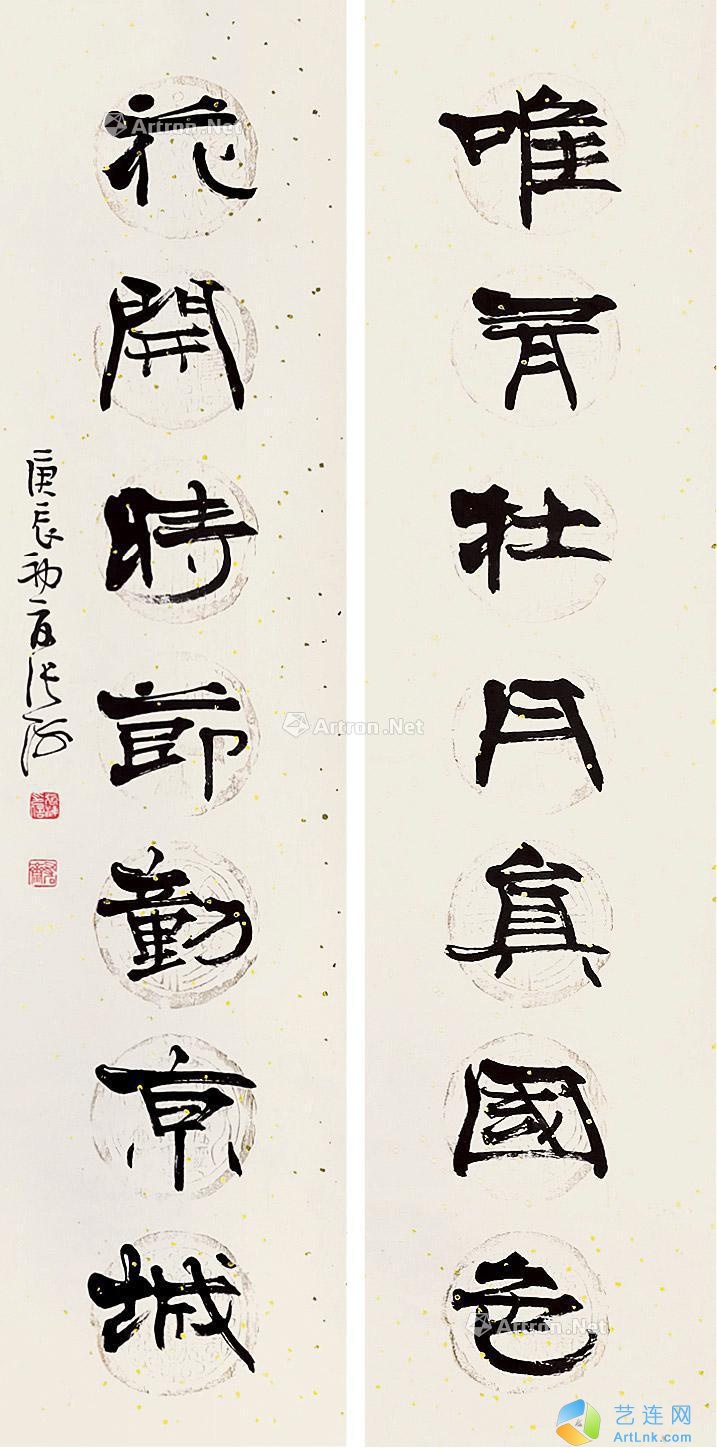 唯有牡丹真國色
花開時節動京城
庚辰初夏張海
Artron.Net
Artron.Net
Artron.Net
艺连网
ArtLnk.com